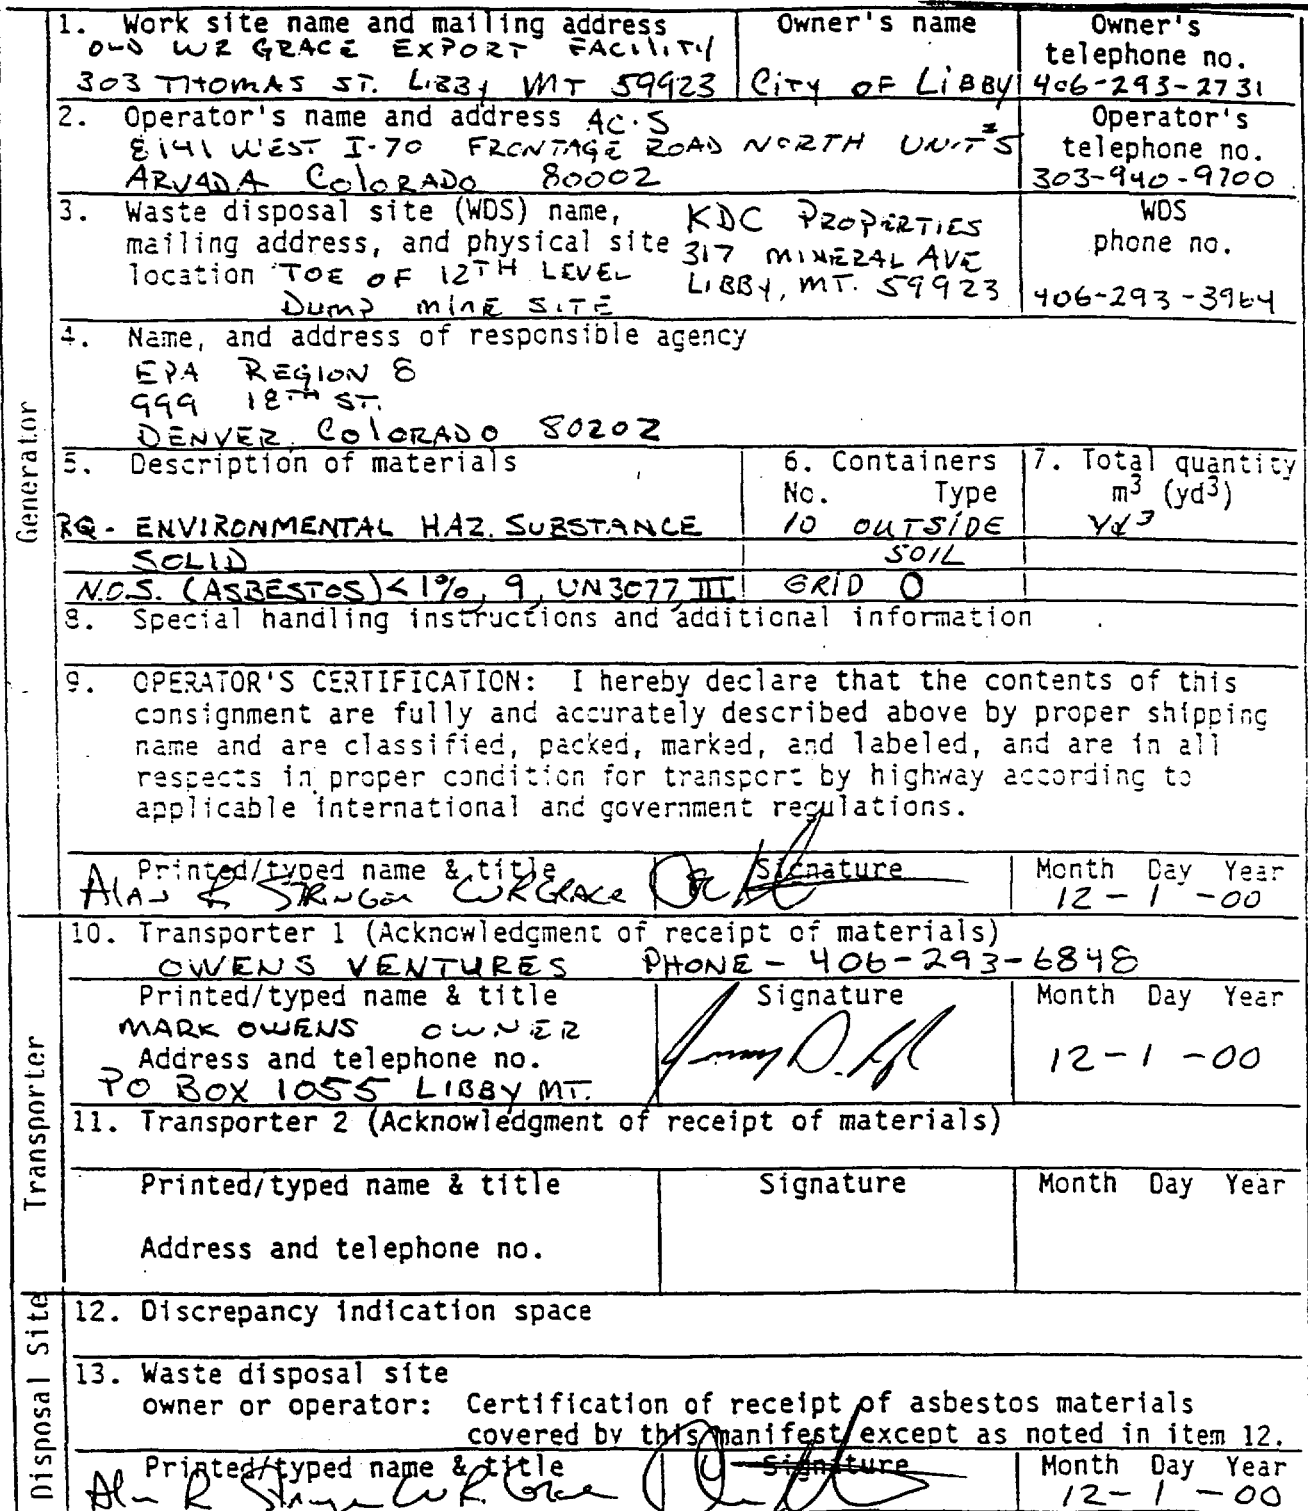 1. Work site name and mailing address
OLD WR GRACE EXPORT FACILITY
303 THOMAS ST. LIBBY MT 59923
Owner's name
CITY OF LIBBY
Owner's
telephone no.
406-293-2731
2. Operator's name and address AC·S
8141 WEST I-70 FRONTAGE ROAD NORTH UNIT #5
ARVADA COLORADO 80002
Operator's
telephone no.
303-940-9700
3. Waste disposal site (WDS) name,
mailing address, and physical site
location TOE OF 12TH LEVEL
DUMP MINE SITE
KDC PROPERTIES
317 MINERAL AVE
LIBBY, MT. 59923
WDS
phone no.
406-293-3964
4. Name, and address of responsible agency
EPA REGION 8
999 18TH ST.
DENVER COLORADO 80202
Generator
5. Description of materials
6. Containers
No. Type
7. Total quantity
m3 (yd3)
RQ - ENVIRONMENTAL HAZ. SUBSTANCE
10 OUTSIDE
Yd3
SOLID
SOIL
N.O.S. (ASBESTOS) < 1%, 9, UN3077, III
GRID O
8. Special handling instructions and additional information
9. OPERATOR'S CERTIFICATION: I hereby declare that the contents of this
consignment are fully and accurately described above by proper shipping
name and are classified, packed, marked, and labeled, and are in all
respects in proper condition for transport by highway according to
applicable international and government regulations.
Printed/typed name & title
Alan R Stringer WRGRACE
Signature
Month Day Year
12 - 1 - 00
Transporter
10. Transporter 1 (Acknowledgment of receipt of materials)
OWENS VENTURES PHONE - 406-293-6848
Printed/typed name & title
MARK OWENS OWNER
Address and telephone no.
PO BOX 1055 LIBBY MT.
Signature
Month Day Year
12 - 1 - 00
11. Transporter 2 (Acknowledgment of receipt of materials)
Printed/typed name & title
Signature
Month Day Year
Address and telephone no.
Disposal Site
12. Discrepancy indication space
13. Waste disposal site
owner or operator: Certification of receipt of asbestos materials
covered by this manifest except as noted in item 12.
Printed/typed name & title
Alan R Stringer W R Grace
Signature
Month Day Year
12 - 1 - 00